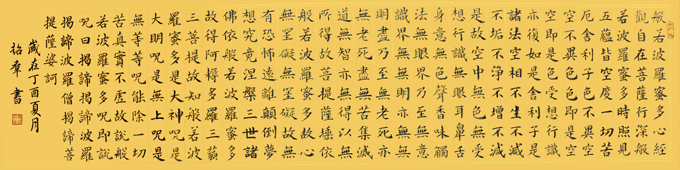 般若波羅蜜多心經
觀自在菩薩行深般
若波羅蜜多時照見
五蘊皆空度一切苦
厄舍利子色不異空
空不異色色即是空
空即是色受想行識
亦復如是舍利子是
諸法空相不生不滅
不垢不淨不增不減
是故空中無色無受
想行識無眼耳鼻舌
身意無色聲香味觸
法無眼界乃至無意
識界無無明亦無無
明盡乃至無老死亦
無老死盡無苦集滅
道無智亦無得以無
所得故菩提薩埵依
般若波羅蜜多故心
無罣礙無罣礙故無
有恐怖遠離顛倒夢
想究竟涅槃三世諸
佛依般若波羅蜜多
故得阿耨多羅三藐
三菩提故知般若波
羅蜜多是大神呪是
大明呪是無上呪是
無等等呪能除一切
苦真實不虛故說般
若波羅蜜多呪即說
呪曰揭諦揭諦波羅
揭諦波羅僧揭諦菩
提薩婆訶
歲在丁酉夏月
群書